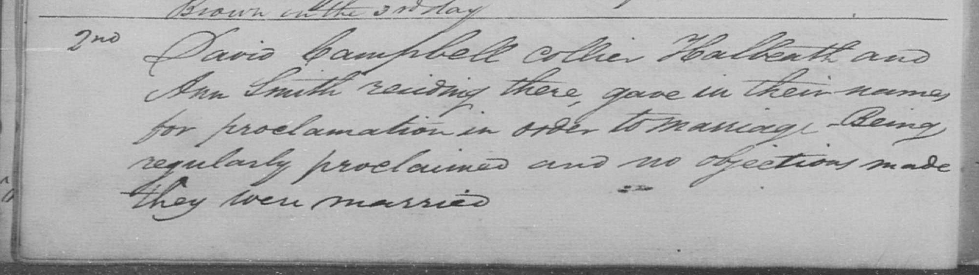 Brown in the 3rd day
2nd David Campbell collier Halbeath and
Ann Smith residing there, gave in their names
for proclamation in order to marriage Being
regularly proclaimed and no objections made
they were married